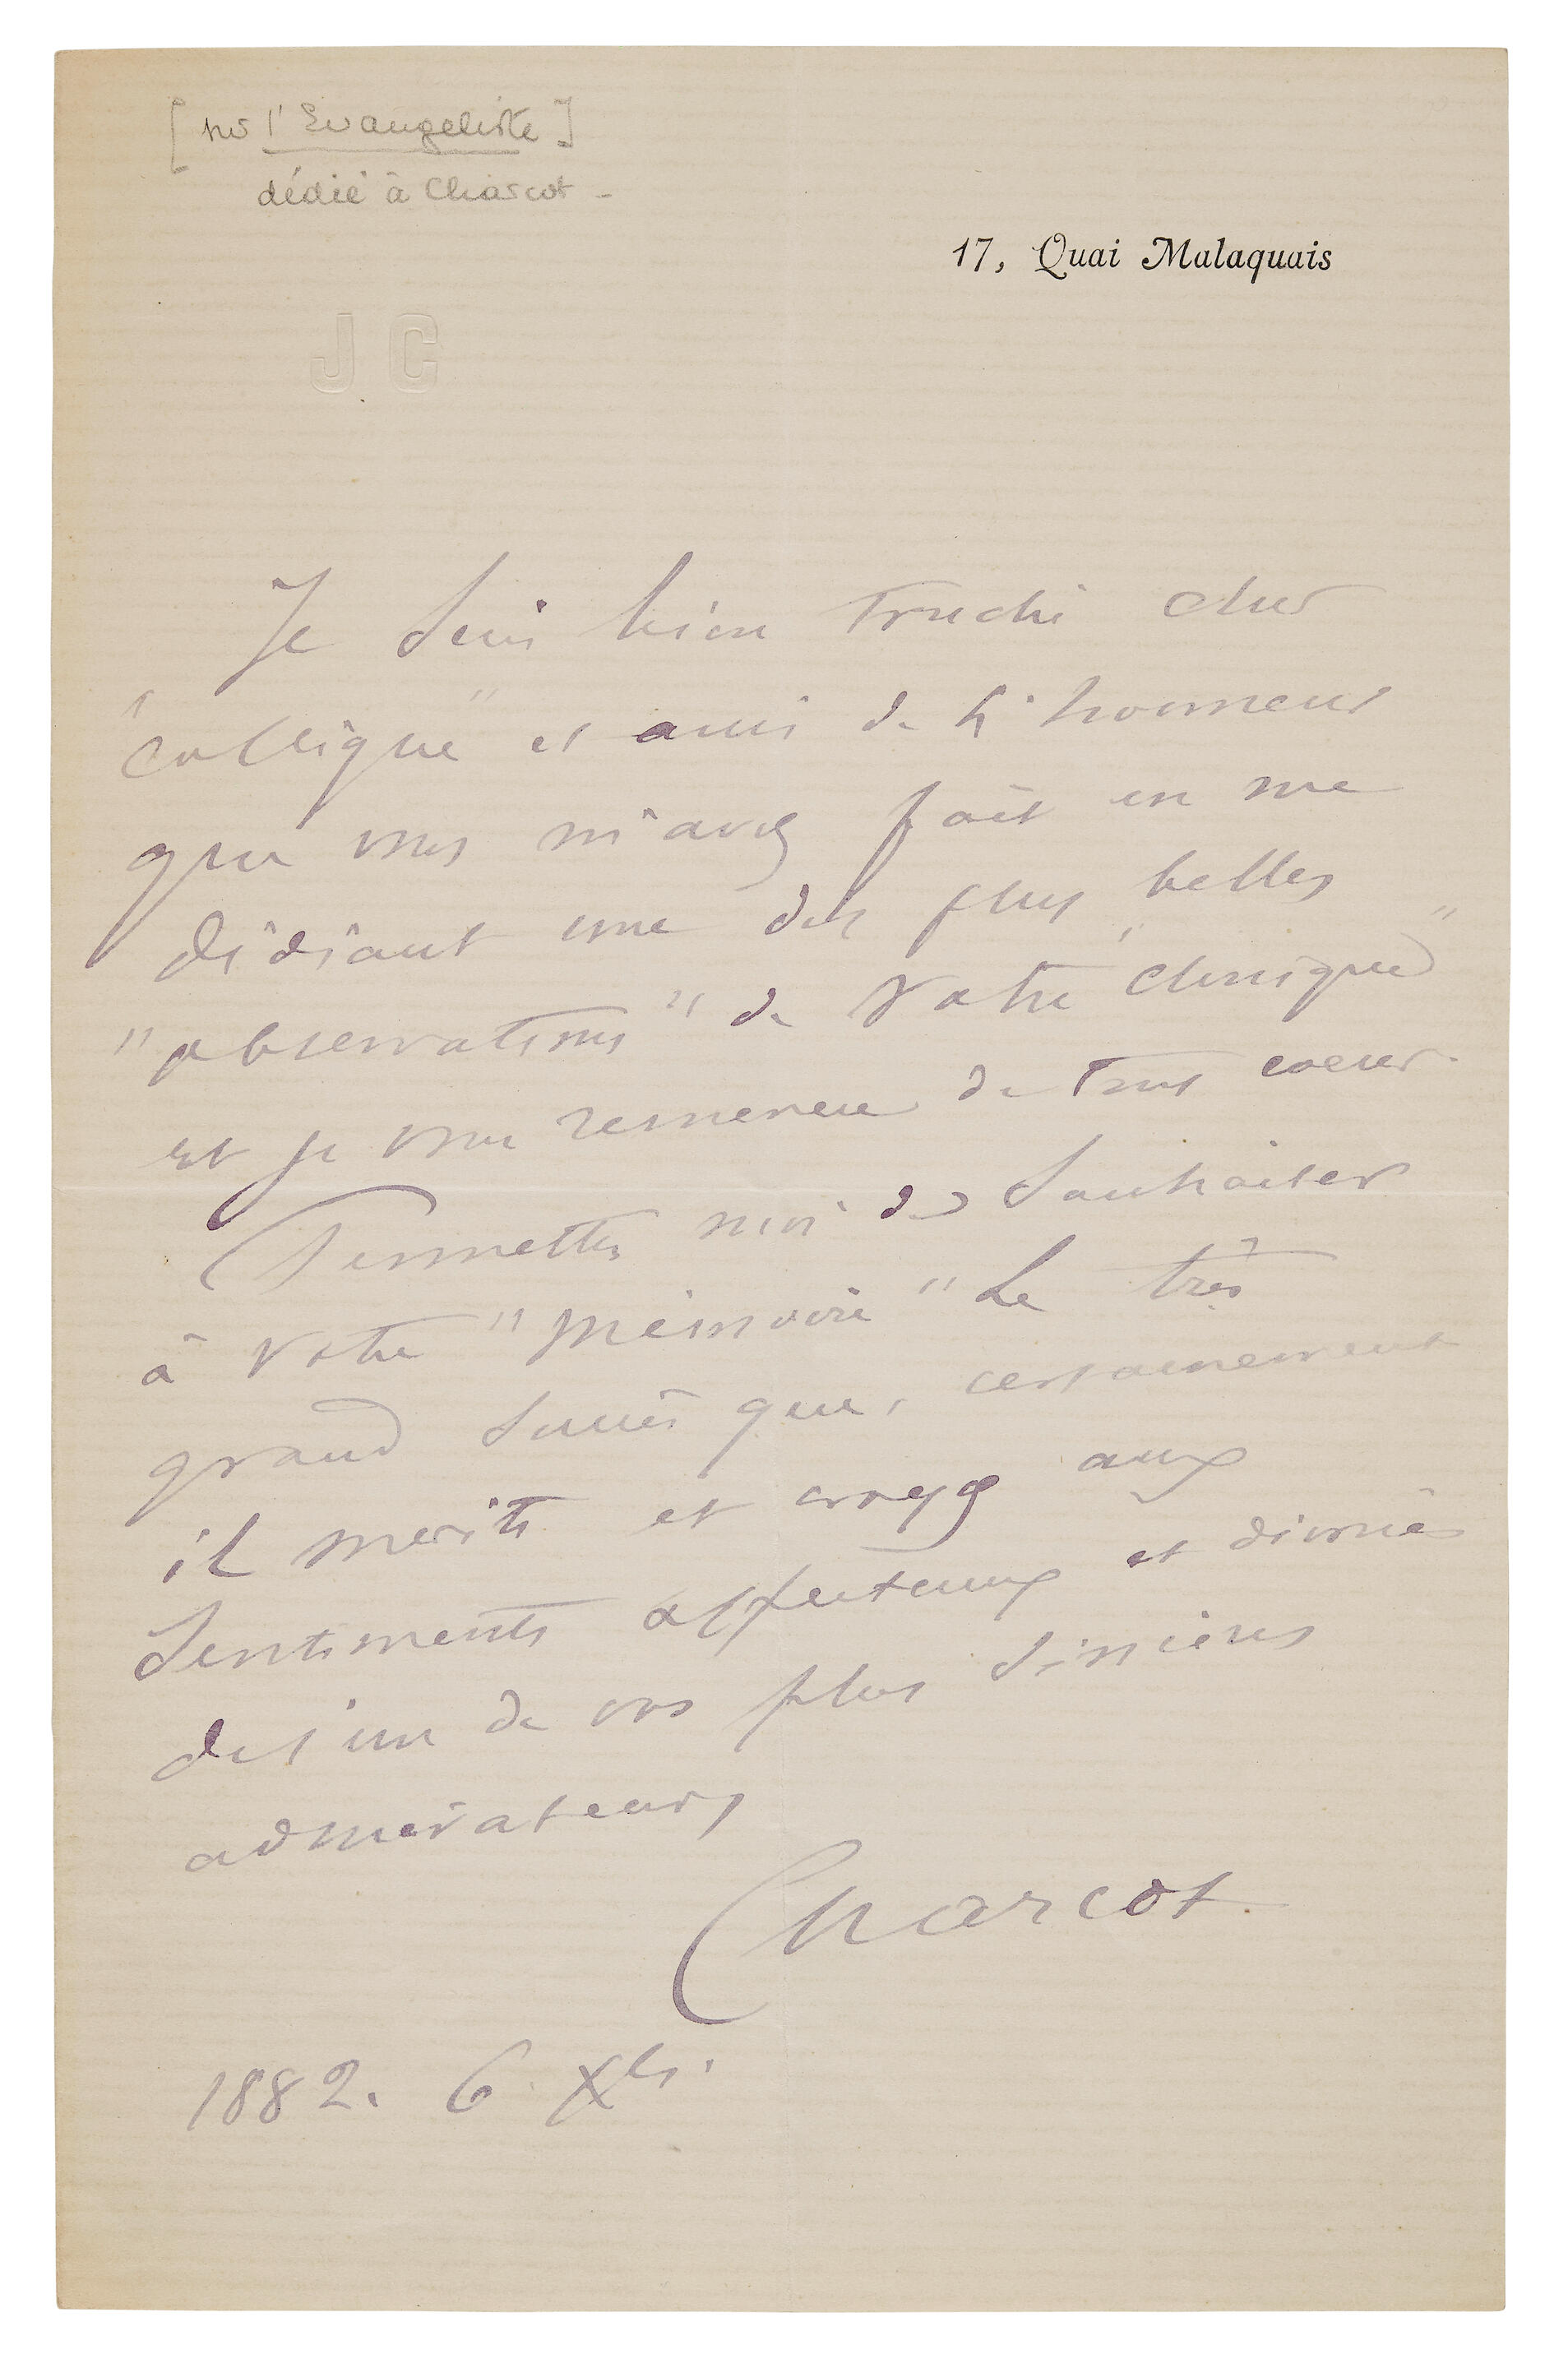 [sur l'Evangeliste]
dédié à Charcot -
17, Quai Malaquais
J C
Je suis bien touché cher
"collègue" et ami de l'honneur
que vous m'avez fait en me
dédiant une des plus belles
"observations" de votre "clinique"
et je vous remercie de tout coeur.
Permettez moi de souhaiter
à votre "mémoire" le très
grand succès que, certainement
il mérite et croyez aux
sentiments affectueux et dévoués
de l'un de vos plus sincères
admirateurs
Charcot.
1882. 6 Xbre.